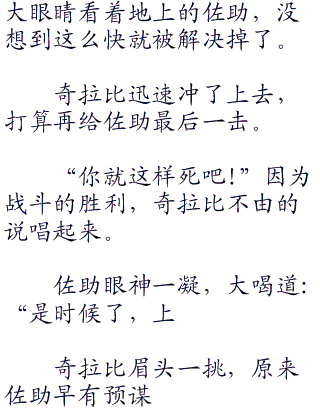 大眼睛看着地上的佐助，没
想到这么快就被解决掉了。
奇拉比迅速冲了上去，
打算再给佐助最后一击。
“你就这样死吧!”因为
战斗的胜利，奇拉比不由的
说唱起来。
佐助眼神一凝，大喝道:
“是时候了，上
奇拉比眉头一挑，原来
佐助早有预谋